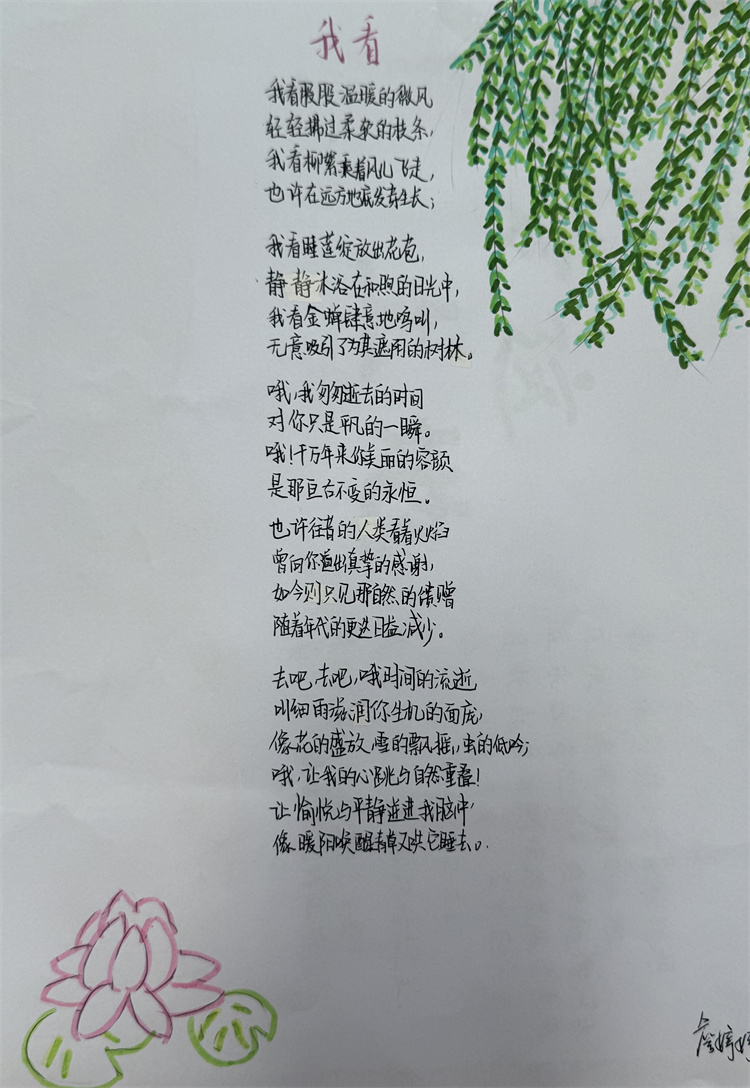 我看
我看股股温暖的微风
轻轻拂过柔杂的枝条,
我看柳絮乘着风儿飞走,
也许在远方地底发芽生长;
我看睡莲绽放出花苞,
静静沐浴在和煦的日光中,
我看金蝉肆意地鸣叫,
无意吸引了为其遮阴的树林。
哦,我匆匆逝去的时间
对你只是平凡的一瞬。
哦!千万年来你美丽的容颜
是那亘古不变的永恒。
也许往昔的人类看着火焰
曾向你道出真挚的感谢,
如今则只见那自然的馈赠
随着年代的更迭日益减少。
去吧,去吧,哦时间的流逝
叫细雨滋润你生机的面庞,
像花的盛放,雪的飘摇,虫的低吟;
哦,让我的心跳与自然重叠!
让愉悦与平静送进我脑中
像暖阳唤醒春草又哄它睡去。
詹婷婷